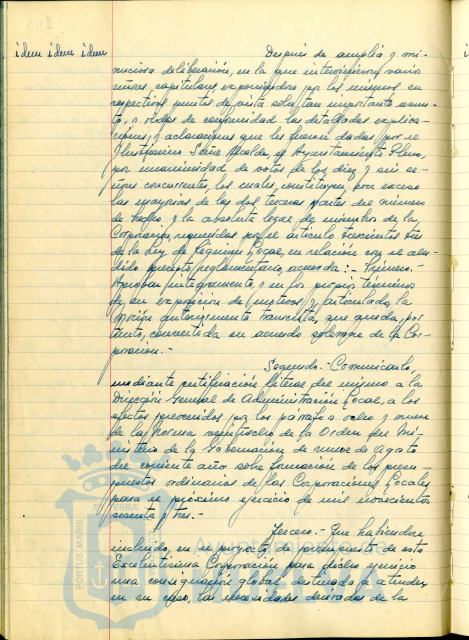 idem idem idem
Después de amplia y mi-
nuciosa deliberación, en la que intervinieron varios
señores capitulares, exponiéndose por los mismos sus
respectivos puntos de vista sobre tan importante asun-
to, y vistas de conformidad las detalladas explica-
ciones y aclaraciones que les fueron dadas por el
Ilustrísimo Señor Alcalde, el Ayuntamiento Pleno,
por unanimidad de votos de los diez y seis se-
ñores concurrentes, los cuales, constituyen, con exceso
las mayorías de las dos terceras partes del número
de hecho y la absoluta legal de miembros de la
Corporación, requeridas por el artículo trescientos tres
de la Ley de Régimen Local, en relación con el alu-
dido precepto reglamentario, acuerda: - Primero. -
Aprobar íntegramente y en sus propios términos
de su exposición de motivos y articulado, la
moción anteriormente transcrita, que queda, por
tanto, convertida en acuerdo solemne de la Cor-
poración. -
Segundo. - Comunicarlo,
mediante certificación literal del mismo a la
Dirección General de Administración Local, a los
efectos prevenidos por los párrafos ocho y nueve
de la Norma veintiocho de la Orden del Mi-
nisterio de la Gobernación de nueve de Agosto
del corriente año, sobre formación de los presu-
puestos ordinarios de las Corporaciones Locales
para el próximo ejercicio de mil novecientos
sesenta y tres. -
Tercero. - Que habiéndose
incluido, en el proyecto de presupuesto de esta
Excelentísima Corporación para dicho ejercicio
una consignación global destinada a atender,
en su caso, las necesidades derivadas de la
PORTUS MARIS
ET TERRA
Ayuntamiento